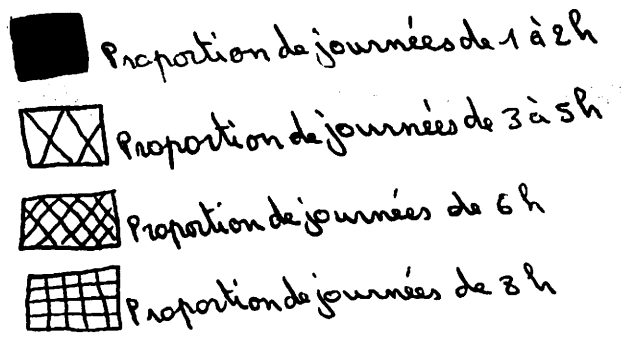 Proportion de journées de 1 à 2h
Proportion de journées de 3 à 5h
Proportion de journées de 6h
Proportion de journées de 8h